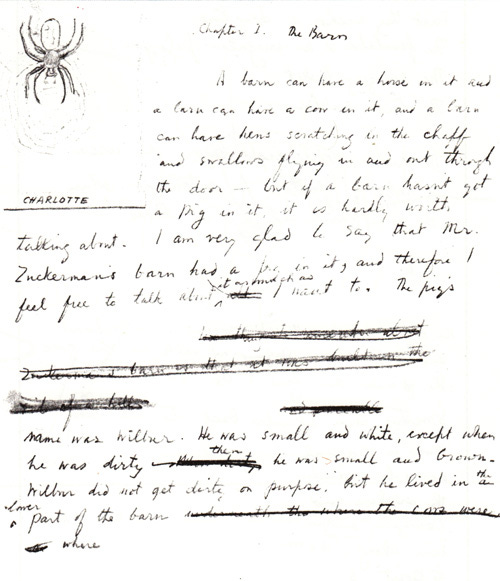 Chapter I. The Barn
A barn can have a horse in it and
a barn can have a cow in it, and a barn
can have hens scratching in the chaff
and swallows flying in and out through
the door — but if a barn hasn't got
CHARLOTTE
a pig in it, it is hardly worth
talking about. I am very glad to say that Mr.
Zuckerman's barn had a pig in it, and therefore I
feel free to talk about it as much as I want to. The pig's
Zuckerman's barn was that it was built on the
name was Wilbur. He was small and white, except when
he was dirty — then he was small and brown.
Wilbur did not get dirty on purpose, but he lived in the
lower part of the barn underneath the where the cows were
where